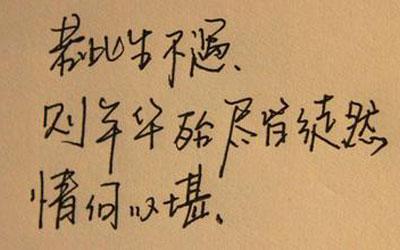 若此生不遇、
则年华殆尽皆徒然
情何以堪。